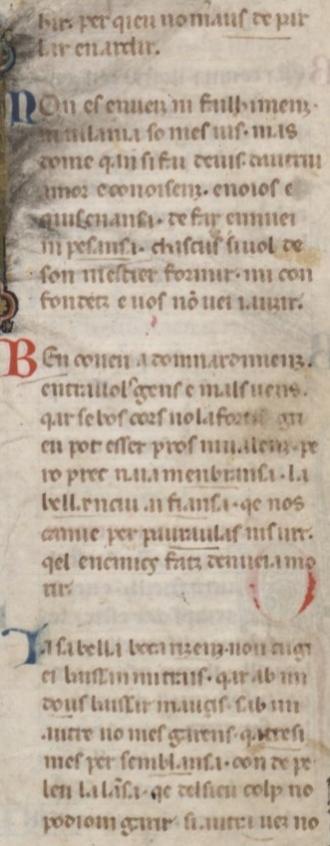 bir. per qieu no mauf de par
lar enardir.
NOn es enueu ni faillimenz.
ni uilania so mes uis. mas
dome qan si fai deuis. dautrui
amor e conoisenz. enoios e
qius enansa. de far ennuei
ni pesansa. chascus si uol de
son mestier formir. mi con
fondetz e uos nō uei iauzir.
BEn couen a domnardimenz.
entrauols gens e mals uezis.
qar se bos cors nol afortis greu
en pot esser pros ni ualenz. pe
ro prec naia menbransa. la
bella encui ai fiansa. qe nos
camie per paraulas nis uire.
qel enemics fatz denueia mo
rir.
Ia sa bella boca rizenz. non cugi
ei baissan mi trais. qar ab un
dous baissar maucis. sab un
autre no mes girens. qatresi
mes per semblansa. con de pe
leu la lāsa. qe del sieu colp no
podiom garir. si autra uez no